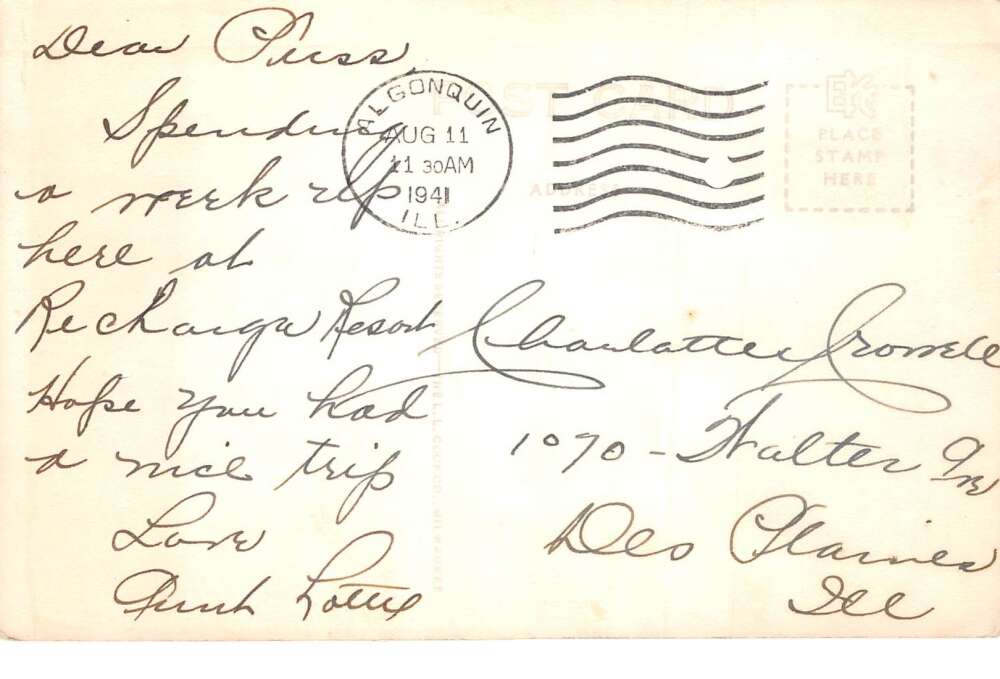 Dear Puss,
Spending
a week up
here at
Recharga Resort
Hope you had
a nice trip
Love
Aunt Lottie
ALGONQUIN
AUG 11
11 30 AM
1941
ILL.
POST CARD
ADDRESS
EKC
PLACE
STAMP
HERE
Charlotte Crowell
1070 - Walter Ave
Des Plaines
Ill